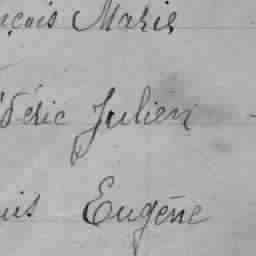 nçois Marie
édéric Julien -
uis Eugène